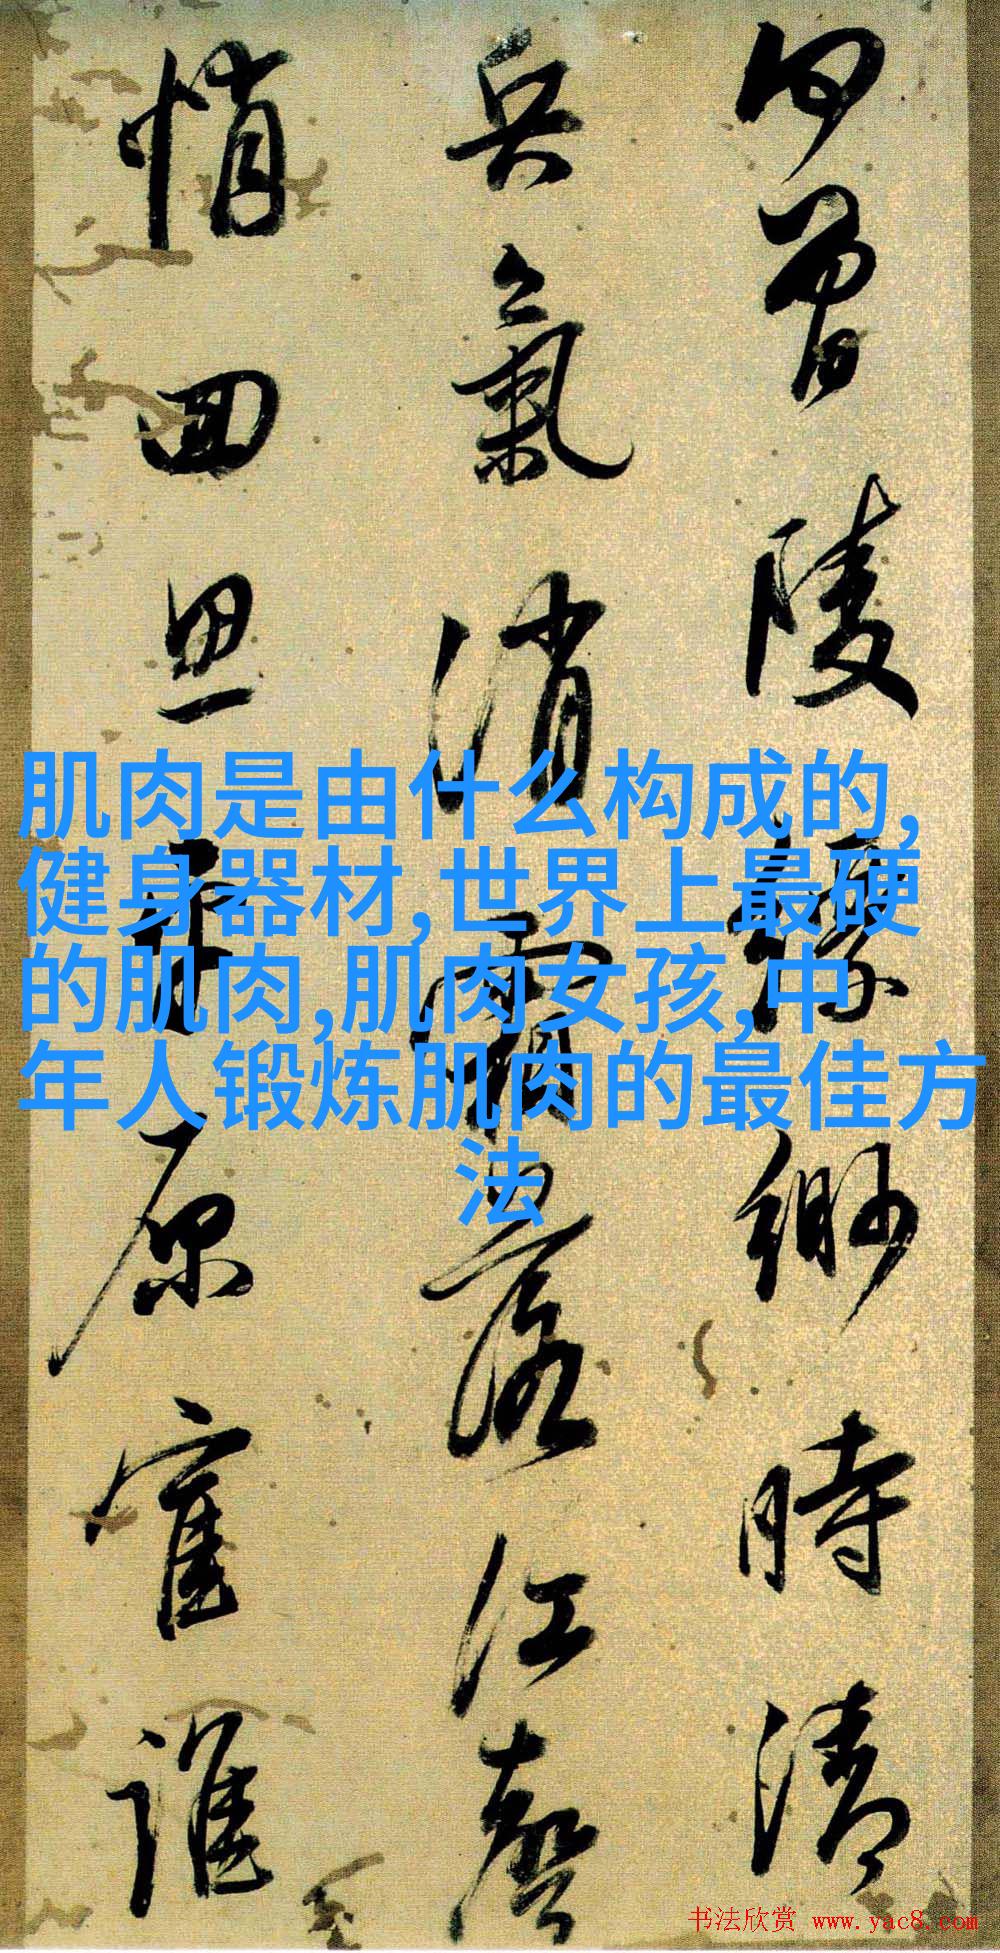 何曾陵樾緲時清
兵氣消霜落江聲
悄回思平原官誰
肌肉是由什么构成的,
健身器材,世界上最硬
的肌肉,肌肉女孩,中
年人锻炼肌肉的最佳方
法
书法欣赏 www.yac8.com